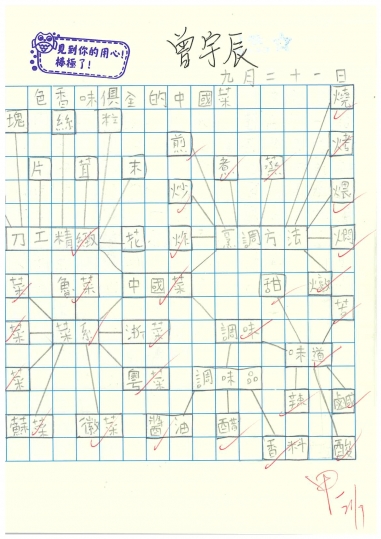 見到你的用心!
棒極了!
曾宇辰
九月二十一日
色香味俱全的中國菜 燒
塊 絲 粒
煎 烤
片 茸 末 煮 蒸
炒 煨
刀工精緻 花 炸 烹調方法 焗
菜 魯菜 中國菜 甜
菜
菜 菜系 浙菜 調味
味道
菜 粵菜 調味品
辣 鹹
蘇菜 徽菜 醬油 醋
香料 酸
甲